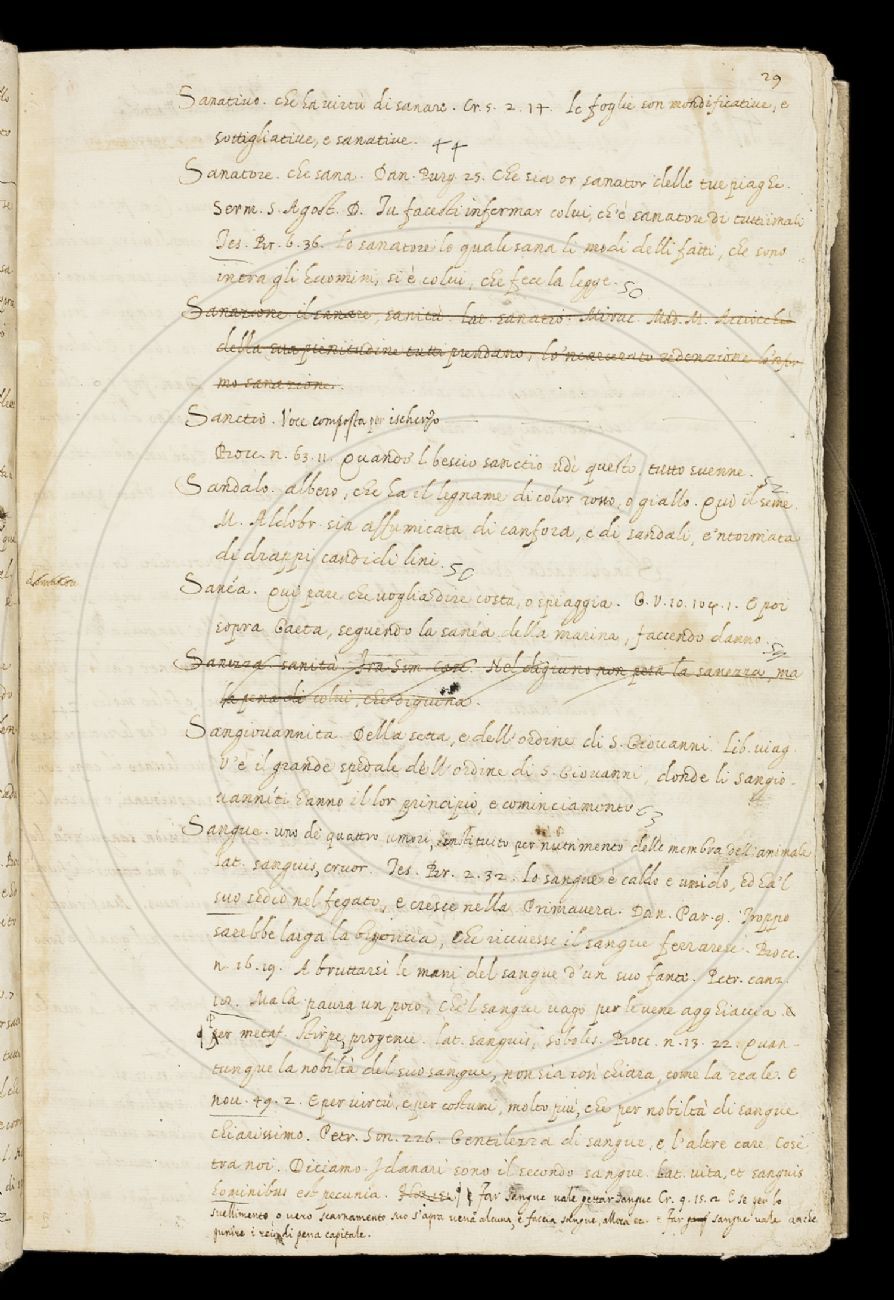 29
Sanativo. che ha virtù di sanare. Cr. 5. 2. 17. Le foglie son mondificative, e
sottigliative, e sanative. 44
Sanatore. che sana. Dan. Purg. 25. Che sia or sanator delle tue piaghe.
Serm. S. Agost. D. Tu facesti infermar colui, ch'è sanatore di tutti i mali
Tes. Br. 6. 36. Lo sanatore lo quale sana li modi delli fatti, che sono
intra gli huomini, si è colui, che fece la legge. 50
Sanazione il sanare, sanità. lat. sanatio. Mirac. Mad. M. Acciocchè
della sua plenitudine tutti prendano, lo 'ncarcerato redenzione lo 'nfer
mo sanazione.
Sanctio. Voce composta per ischerzo
Bocc. n. 63. 11. Quando 'l bescio sanctio udì questo, tutto svenne.
Sandalo. albero, che ha il legname di color rosso, o giallo. Qui il seme. 52
M. Aldobr. sia affumicata di canfora, e di sandali, e 'ntorniata
di drappi candidi lini. 50
Sanéa. Qui pare che voglia dire costa, o spiaggia. G. V. 10. 104. 1. E poi
sopra Gaeta, seguendo la sanéa della marina, faccendo danno.
Sanezza sanità. Fra Sim. Casc. Nel digiuno non però la sanezza, ma
la pena di colui, che digiuna.
Sangiovannita. Della setta, e dell'ordine di S. Giovanni. Lib. viag.
V'è il grande spedale dell'ordine di S. Giovanni, donde li sangio-
vanníti hanno il lor principio, e cominciamento 63
Sangue. uno de quattro umori, instituito per nutrimento delle membra dell'animale
lat. sanguis, cruor. Tes. Br. 2. 32. Lo sangue è caldo e umido, ed ha 'l
suo sedio nel fegato, e cresce nella Primavera. Dan. Par. 9. Troppo
sarebbe larga la bigoncia, che ricevesse il sangue ferrarese. Bocc.
n. 16. 19. A bruttarsi le mani del sangue d'un suo fante. Petr. canz.
Ma la paura un poco, che 'l sangue vago per le vene agghiaccia
per metaf. Stirpe, progenie. lat. sanguis, soboles. Bocc. n. 13. 22. Quan-
tunque la nobiltà del suo sangue, non sia così chiara, come la reale. E
nov. 49. 2. E per virtù, e per costumi, molto più, che per nobiltà di sangue
chiarissimo. Petr. Son. 226. Gentilezza di sangue, e l'altre care Cose
tra noi. Diciamo. I danari sono il secondo sangue. Lat. vita, et sanguis
hominibus est pecunia. Far sangue vale gettar sangue Cr. 9. 15. 2. E se per lo
svellimento o vero scarnamento suo s'apra vena alcuna, e faccia sangue, allora ec. Far sangue vale anche
punire i rei di pena capitale.